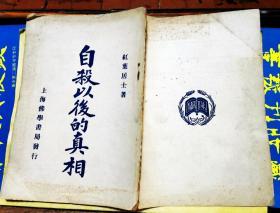 紅葉居士著
自殺以後的真相
上海佛學書局發行